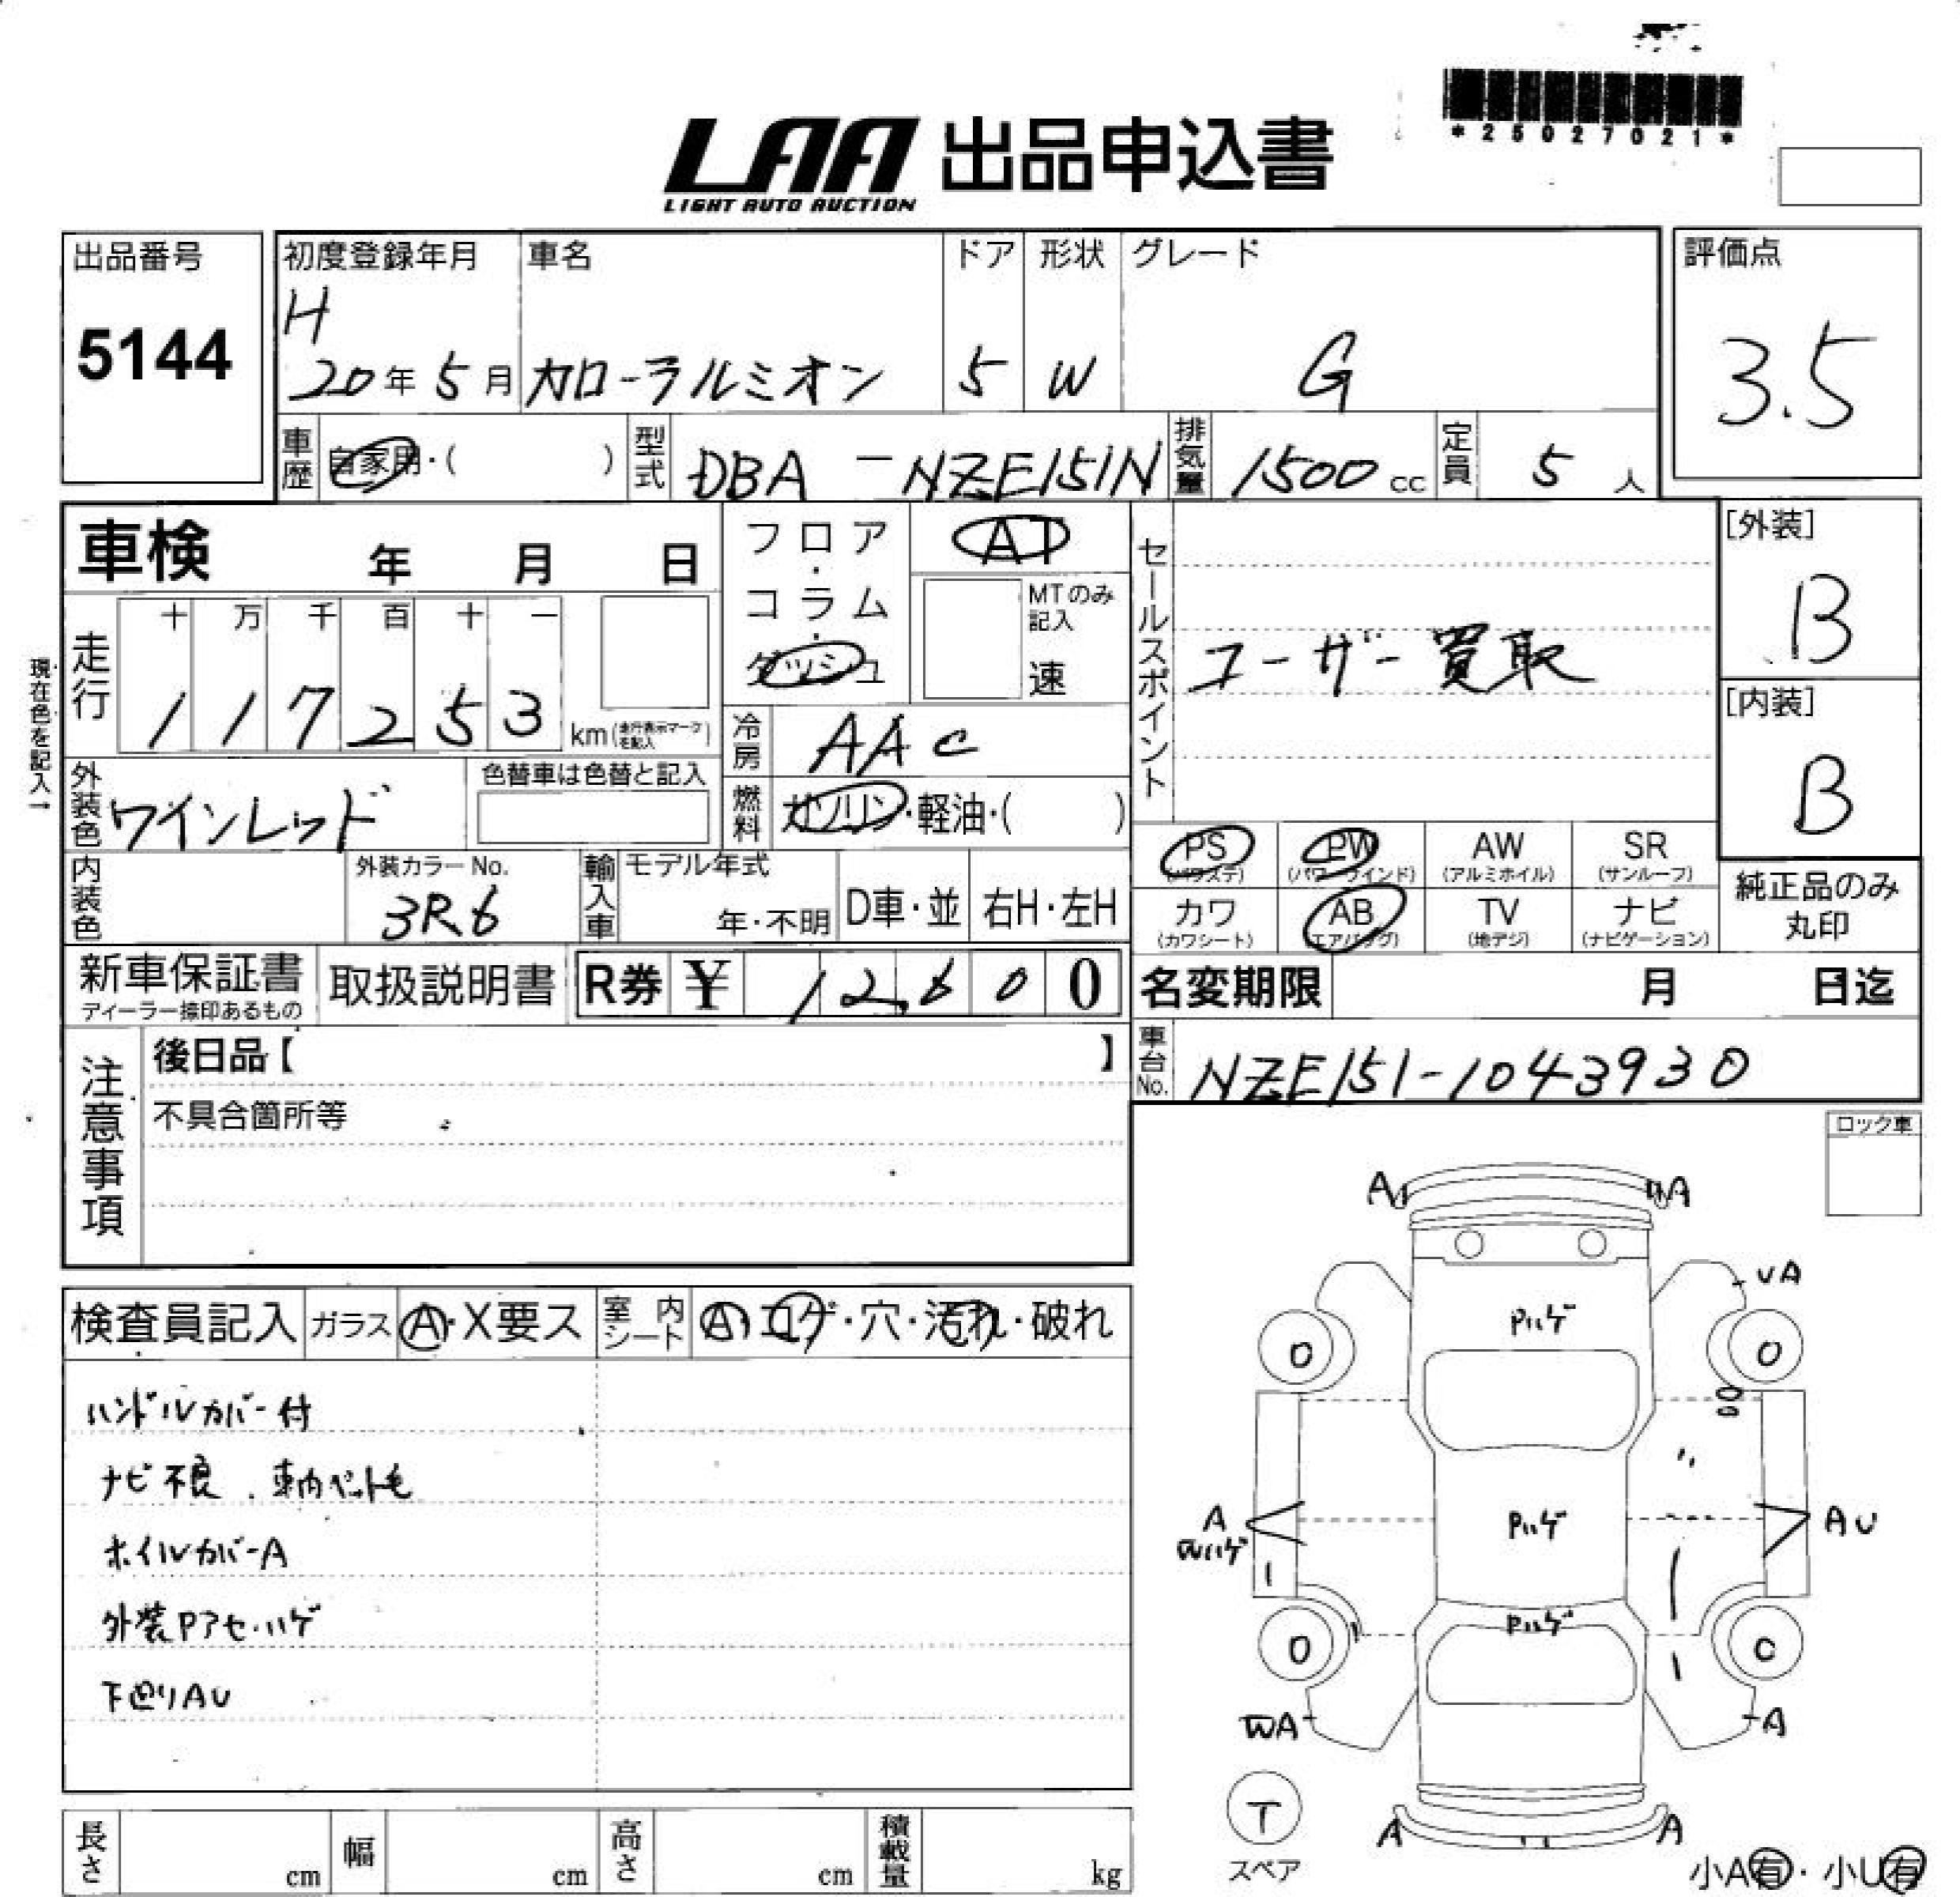 *25027021*
LAA 出品申込書
LIGHT AUTO AUCTION
出品番号
5144
初度登録年月
H
20年 5月
車名
カローラルミオン
ドア
5
形状
W
グレード
G
評価点
3.5
車歴 自家用・( )
型式 DBA - NZE151N
排気量 1500 cc
定員 5 人
車検 年 月 日
フロア・コラム・ダッシュ
AT
MTのみ記入
速
セールスポイント
ユーザー買取
[外装]
B
[内装]
B
現在色を記入→
走行
十 万 千 百 十 一
1 1 7 2 5 3 km (走行表示マークを記入)
冷房 AAC
燃料 ガソリン・軽油・( )
外装色 ワインレッド
色替車は色替と記入
PS (パワステ)
PW (パワーウインド)
AW (アルミホイル)
SR (サンルーフ)
カワ (カワシート)
AB (エアバッグ)
TV (地デジ)
ナビ (ナビゲーション)
純正品のみ
丸印
内装色
外装カラーNo.
3R6
輸入車
モデル年式
年・不明
D車・並
右H・左H
新車保証書
ディーラー捺印あるもの
取扱説明書
R券 ¥ 12,600
名変期限 月 日迄
車台No. NZE151-1043930
注意事項
後日品【 】
不具合箇所等
ロック車
検査員記入
ガラス A・X要ス
室内シート A コゲ・穴・汚れ・破れ
ハンドルカバー付
ナビ不良 . 車内ペット毛
ホイルカバーA
外装Pアセ・ハゲ
下回りAU
A A
UA
Pハゲ
0 0
A
Wハゲ
Pハゲ
AU
Pハゲ
0 0
WA A
T
スペア
A A
小A有・小U有
長さ cm
幅 cm
高さ cm
積載量 kg